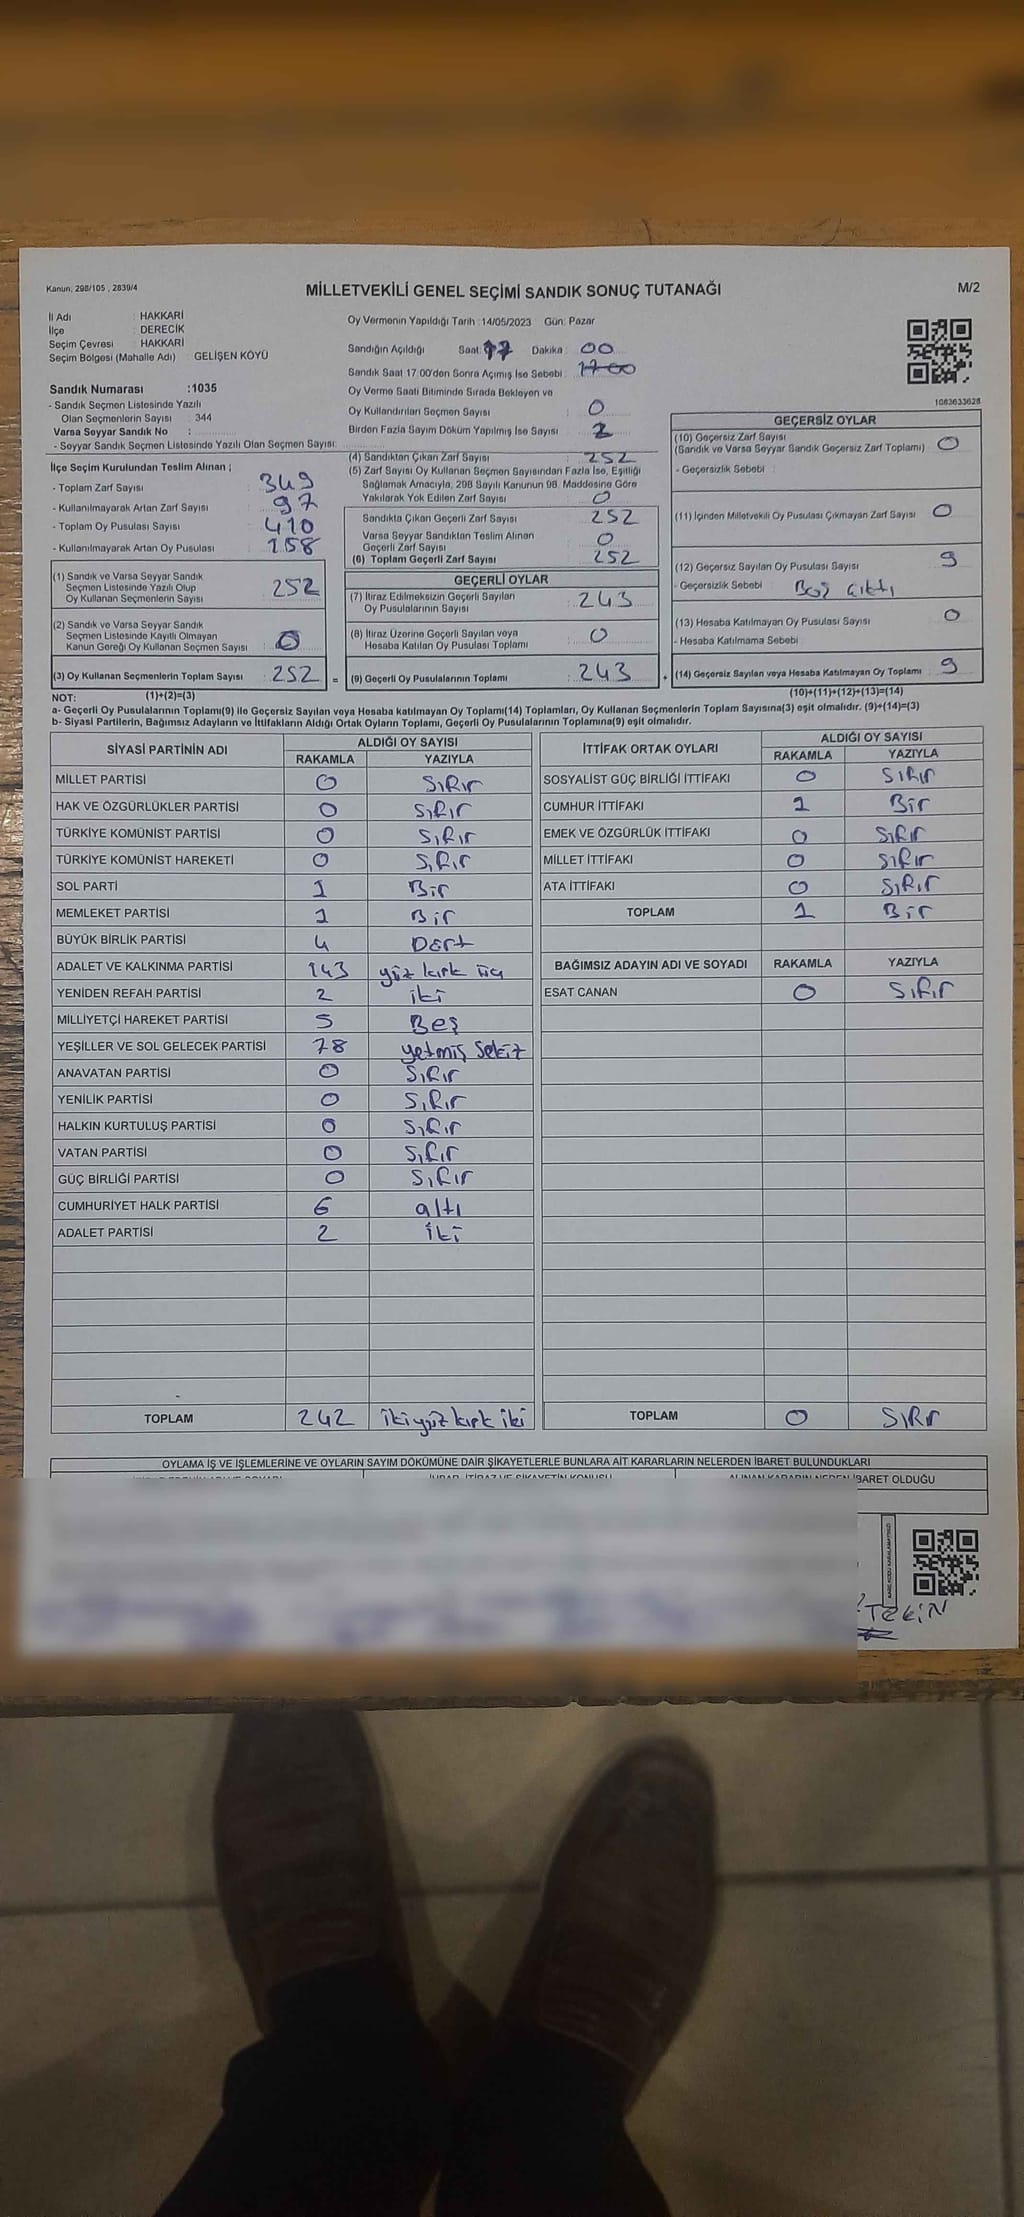 Kanun, 298/105 , 2839/4
MİLLETVEKİLİ GENEL SEÇİMİ SANDIK SONUÇ TUTANAĞI
M/2
İl Adı : HAKKARİ
İlçe : DERECİK
Seçim Çevresi : HAKKARİ
Seçim Bölgesi (Mahalle Adı) : GELİŞEN KÖYÜ
Oy Vermenin Yapıldığı Tarih :14/05/2023 Gün: Pazar
Sandığın Açıldığı Saat: 17 Dakika : 00
Sandık Saat 17:00'den Sonra Açımış İse Sebebi : 17 00
Oy Verme Saati Bitiminde Sırada Bekleyen ve
Oy Kullandırılan Seçmen Sayısı : 0
Birden Fazla Sayım Döküm Yapılmış İse Sayısı : 2
1063633628
Sandık Numarası :1035
- Sandık Seçmen Listesinde Yazılı
Olan Seçmenlerin Sayısı : 344
Varsa Seyyar Sandık No :
- Seyyar Sandık Seçmen Listesinde Yazılı Olan Seçmen Sayısı:
İlçe Seçim Kurulundan Teslim Alınan ;
- Toplam Zarf Sayısı : 349
- Kullanılmayarak Artan Zarf Sayısı : 97
- Toplam Oy Pusulası Sayısı : 410
- Kullanılmayarak Artan Oy Pusulası : 158
(1) Sandık ve Varsa Seyyar Sandık
Seçmen Listesinde Yazılı Olup
Oy Kullanan Seçmenlerin Sayısı : 252
(2) Sandık ve Varsa Seyyar Sandık
Seçmen Listesinde Kayıtlı Olmayan
Kanun Gereği Oy Kullanan Seçmen Sayısı : 0
(3) Oy Kullanan Seçmenlerin Toplam Sayısı : 252 =
(4) Sandıktan Çıkan Zarf Sayısı : 252
(5) Zarf Sayısı Oy Kullanan Seçmen Sayısından Fazla İse, Eşitliği
Sağlamak Amacıyla, 298 Sayılı Kanunun 98. Maddesine Göre
Yakılarak Yok Edilen Zarf Sayısı : 0
Sandıkta Çıkan Geçerli Zarf Sayısı : 252
Varsa Seyyar Sandıktan Teslim Alınan
Geçerli Zarf Sayısı : 0
(6) Toplam Geçerli Zarf Sayısı : 252
GEÇERLİ OYLAR
(7) İtiraz Edilmeksizin Geçerli Sayılan
Oy Pusulalarının Sayısı : 243
(8) İtiraz Üzerine Geçerli Sayılan veya
Hesaba Katılan Oy Pusulası Toplamı : 0
(9) Geçerli Oy Pusulalarının Toplamı : 243 +
GEÇERSİZ OYLAR
(10) Geçersiz Zarf Sayısı
(Sandık ve Varsa Seyyar Sandık Geçersiz Zarf Toplamı) : 0
- Geçersizlik Sebebi :
(11) İçinden Milletvekili Oy Pusulası Çıkmayan Zarf Sayısı : 0
(12) Geçersiz Sayılan Oy Pusulası Sayısı : 9
- Geçersizlik Sebebi : Boş çıktı
(13) Hesaba Katılmayan Oy Pusulası Sayısı : 0
- Hesaba Katılmama Sebebi :
(14) Geçersiz Sayılan veya Hesaba Katılmayan Oy Toplamı : 9
NOT: (1)+(2)=(3)
(10)+(11)+(12)+(13)=(14)
a- Geçerli Oy Pusulalarının Toplamı(9) ile Geçersiz Sayılan veya Hesaba katılmayan Oy Toplamı(14) Toplamları, Oy Kullanan Seçmenlerin Toplam Sayısına(3) eşit olmalıdır. (9)+(14)=(3)
b- Siyasi Partilerin, Bağımsız Adayların ve İttifakların Aldığı Ortak Oyların Toplamı, Geçerli Oy Pusulalarının Toplamına(9) eşit olmalıdır.
SİYASİ PARTİNİN ADI ALDIĞI OY SAYISI
RAKAMLA YAZIYLA
MİLLET PARTİSİ 0 Sıfır
HAK VE ÖZGÜRLÜKLER PARTİSİ 0 Sıfır
TÜRKİYE KOMÜNİST PARTİSİ 0 Sıfır
TÜRKİYE KOMÜNİST HAREKETİ 0 Sıfır
SOL PARTİ 1 Bir
MEMLEKET PARTİSİ 1 Bir
BÜYÜK BİRLİK PARTİSİ 4 Dört
ADALET VE KALKINMA PARTİSİ 143 yüz kırk üç
YENİDEN REFAH PARTİSİ 2 iki
MİLLİYETÇİ HAREKET PARTİSİ 5 Beş
YEŞİLLER VE SOL GELECEK PARTİSİ 78 yetmiş sekiz
ANAVATAN PARTİSİ 0 Sıfır
YENİLİK PARTİSİ 0 Sıfır
HALKIN KURTULUŞ PARTİSİ 0 Sıfır
VATAN PARTİSİ 0 Sıfır
GÜÇ BİRLİĞİ PARTİSİ 0 Sıfır
CUMHURİYET HALK PARTİSİ 6 altı
ADALET PARTİSİ 2 iki
TOPLAM 242 ikiyüz kırk iki
İTTİFAK ORTAK OYLARI ALDIĞI OY SAYISI
RAKAMLA YAZIYLA
SOSYALİST GÜÇ BİRLİĞİ İTTİFAKI 0 Sıfır
CUMHUR İTTİFAKI 1 Bir
EMEK VE ÖZGÜRLÜK İTTİFAKI 0 Sıfır
MİLLET İTTİFAKI 0 Sıfır
ATA İTTİFAKI 0 Sıfır
TOPLAM 1 Bir
BAĞIMSIZ ADAYIN ADI VE SOYADI RAKAMLA YAZIYLA
ESAT CANAN 0 Sıfır
TOPLAM 0 Sıfır
OYLAMA İŞ VE İŞLEMLERİNE VE OYLARIN SAYIM DÖKÜMÜNE DAİR ŞİKAYETLERLE BUNLARA AİT KARARLARIN NELERDEN İBARET BULUNDUKLARI
İHBAR, İTİRAZ VE ŞİKAYETİN KONUSU ALINAN KARARIN NEDEN İBARET OLDUĞU
TEKİN